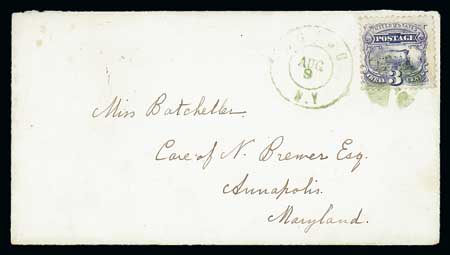 UNITED STATES
POSTAGE
3
THREE CENTS
AUG.
9
Miss Batcheller.
Care of N. Brewer Esq.
Annapolis.
Maryland.